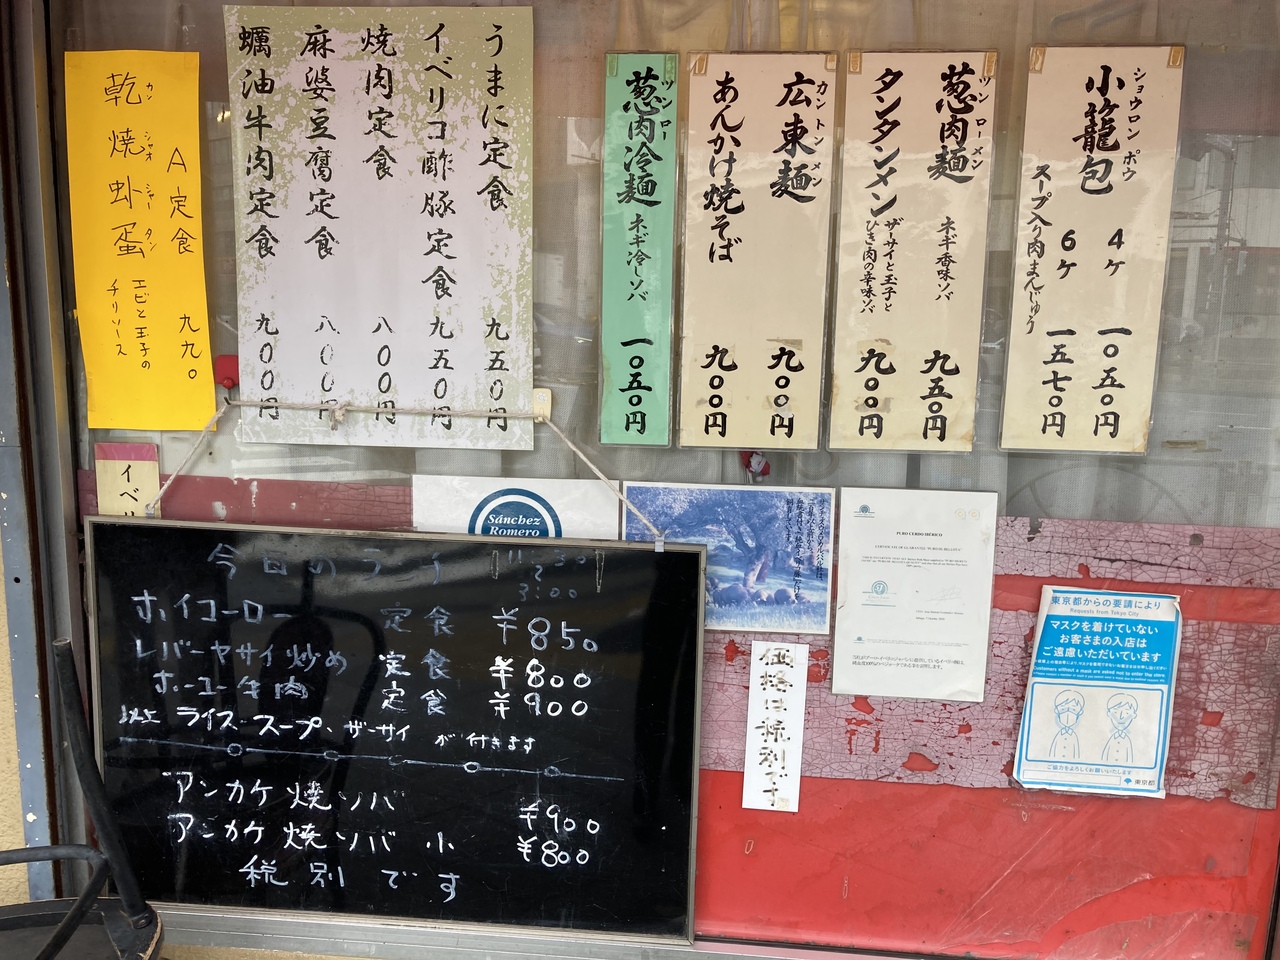 小籠包
ショウロンポウ
4ケ 一〇五〇円
6ケ 一五七〇円
スープ入り肉まんじゅう
葱肉麺
ツンローメン
ネギ香味ソバ
九五〇円
タンタンメン
ザーサイと玉子と
ひき肉の辛味ソバ
九〇〇円
広東麺
カントンメン
九〇〇円
あんかけ焼そば
九〇〇円
葱肉冷麺
ツンロー
ネギ冷しソバ
一〇五〇円
うまに定食 九五〇円
イベリコ酢豚定食 九五〇円
焼肉定食 八〇〇円
麻婆豆腐定食 八〇〇円
蠣油牛肉定食 九〇〇円
A定食 九九〇
乾焼虾蛋
カンシャオシャータン
エビと玉子の
チリソース
イベリ
Sánchez
Romero
今日のランチ
11:30
〜
3:00
ホイコーロー 定食 ¥850
レバーヤサイ炒め 定食 ¥800
ホーユー牛肉 定食 ¥900
以上 ライス・スープ、ザーサイ が付きます
アンカケ焼ソバ ¥900
アンカケ焼ソバ 小 ¥800
税別です
価格は税別です
PURO CERDO IBÉRICO
東京都からの要請により
Requests from Tokyo City
マスクを着けていない
お客さまの入店は
ご遠慮いただいています
ご協力をよろしくお願いいたします
東京都